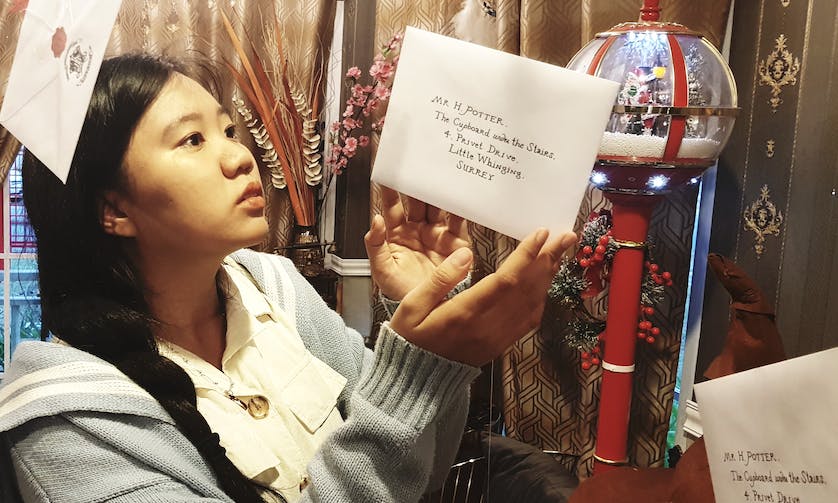 MR H. POTTER.
The Cupboard under the Stairs,
4. Privet Drive,
Little Whinging,
SURREY
MR H. POTTER.
The Cupboard under the Stairs
4. Privet Drive